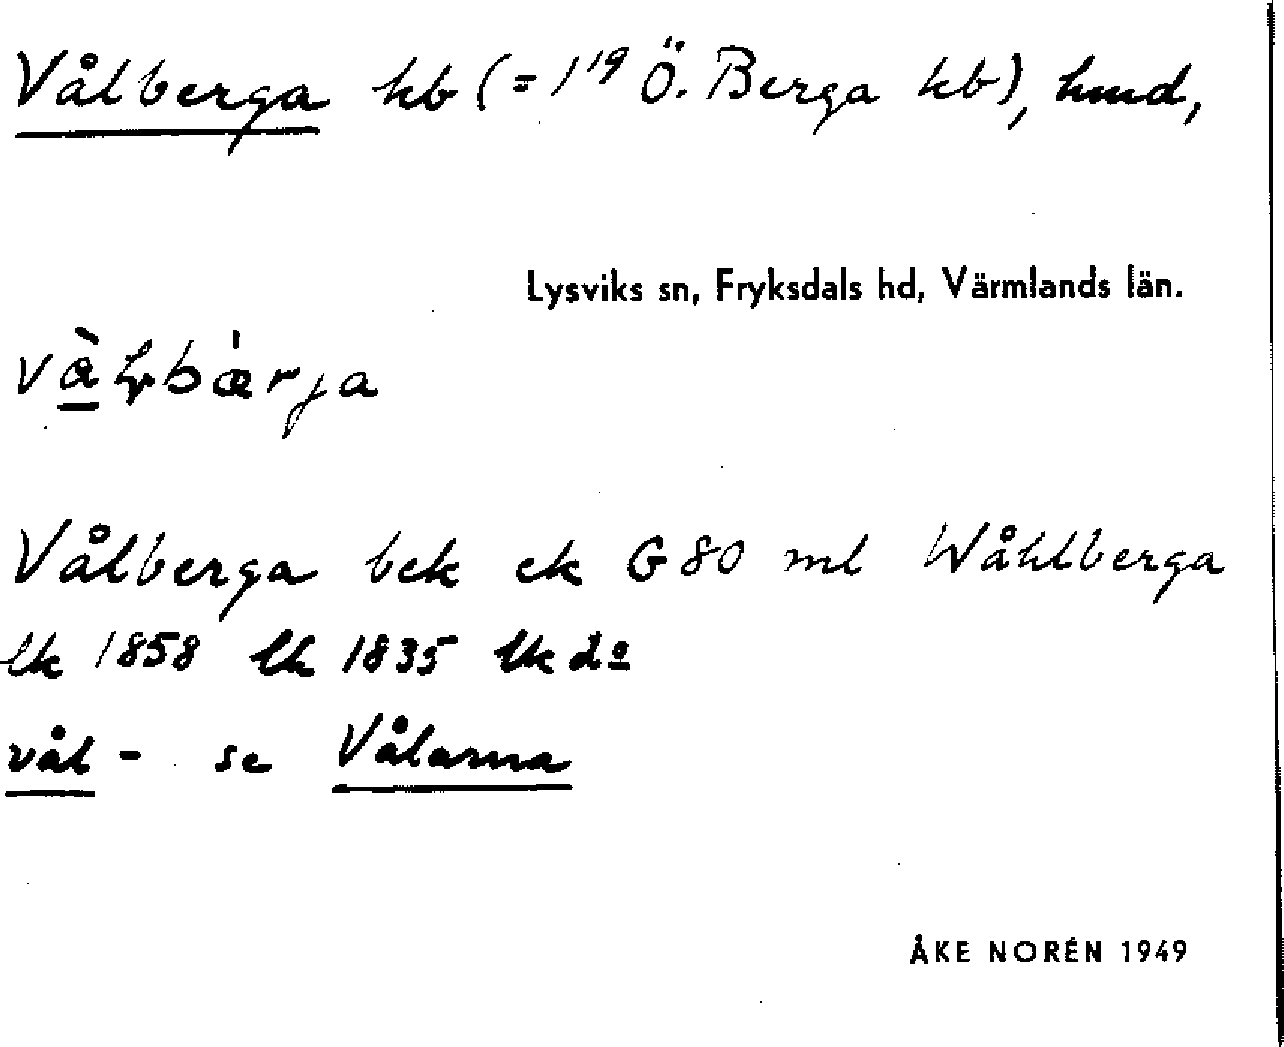 Vålberga hb (= 1¹⁹ Ö. Berga hb), hmd,
Lysviks sn, Fryksdals hd, Värmlands län.
Vålberga bek ek G 80 ml Wåhlberga
lk 1858 lk 1835 lk dº
vål - se Vålarna
ÅKE NORÉN 1949